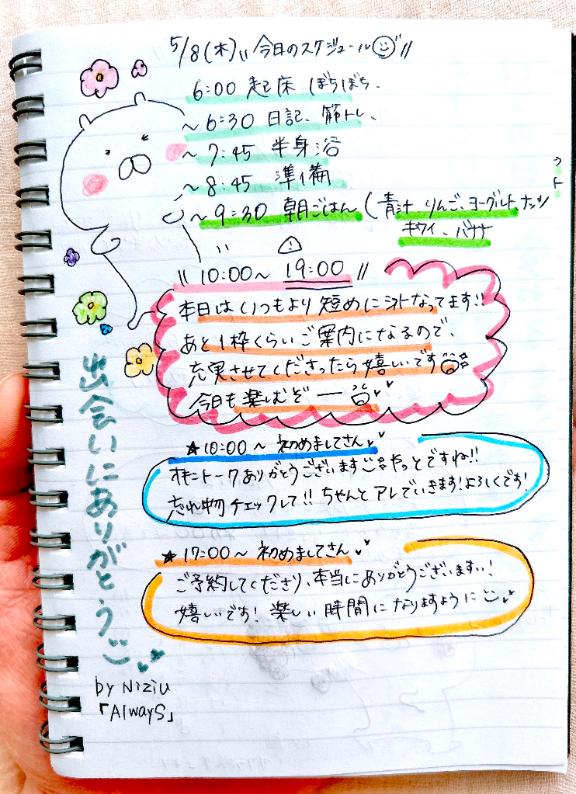 5/8(木) 今日のスケジュール
6:00 起床 ぼちぼち、
~6:30 日記、筋トレ、
~7:45 半身浴
~8:45 準備
~9:30 朝ごはん (青汁 りんご、ヨーグルト、ナッツ
キウイ、バナナ
10:00~19:00
本日はいつもより短めにシフトなってます!!
あと1枠くらいご案内になるので、
充実させてくださったら嬉しいです
今日も楽しむぞー
★10:00~初めましてさん
オキニトークありがとうございます やっとですね!!
忘れ物チェックして!! ちゃんとアレでいきます!よろしくです!
★17:00~初めましてさん
ご予約してくださり、本当にありがとうございます!
嬉しいです! 楽しい時間になりますように
出会いにありがとう
by NiziU
「AlwayS」